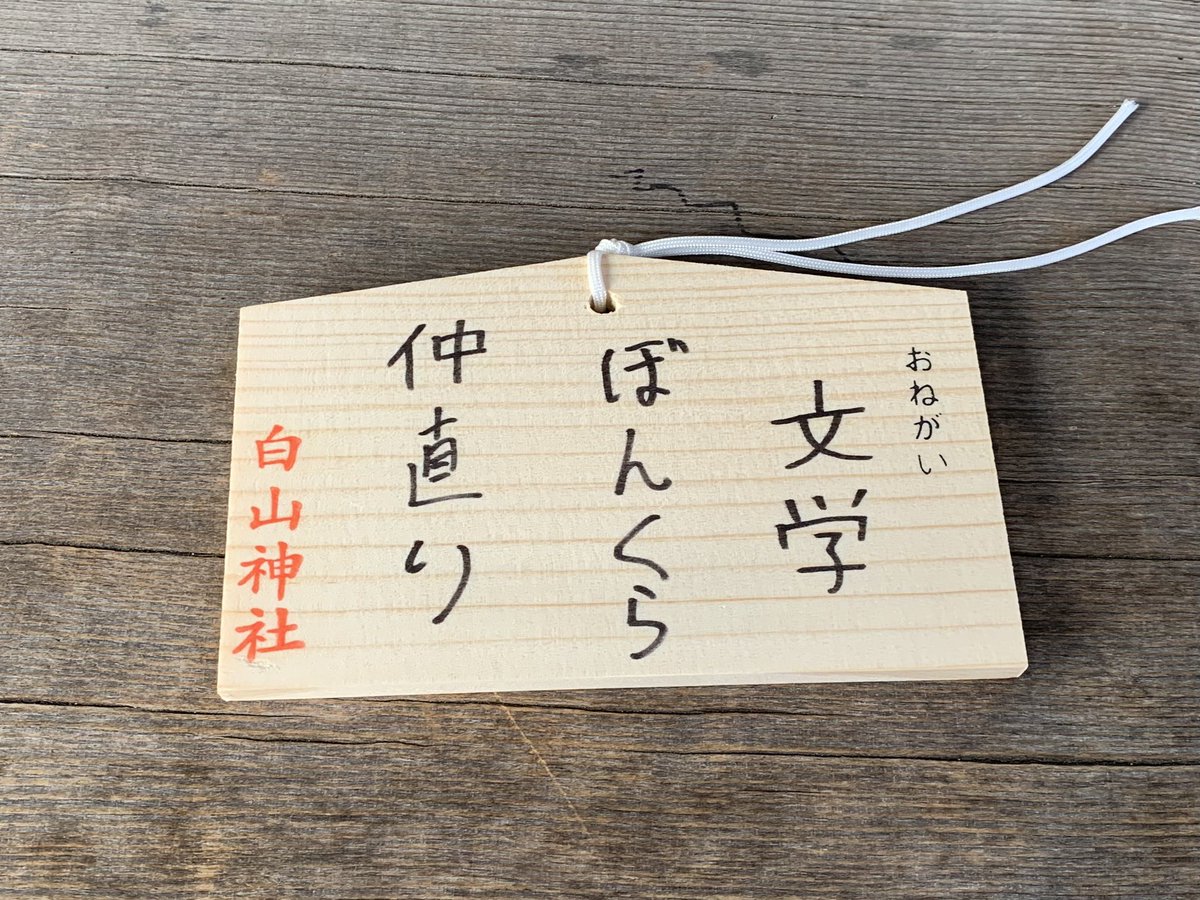 おねがい
文学
ぼんくら
仲直り
白山神社